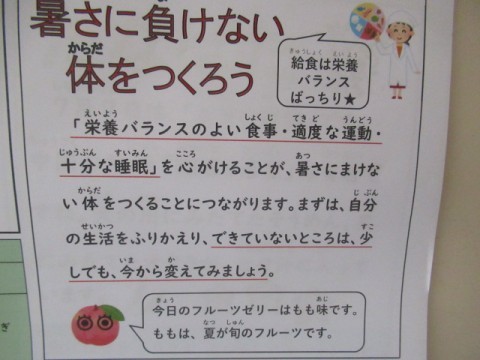 暑さに負けない
体をつくろう
からだ
きゅうしょく えいよう
給食は栄養
バランス
ばっちり★
えいよう しょくじ てきど うんどう
「栄養バランスのよい食事・適度な運動・
じゅうぶん すいみん こころ あつ
十分な睡眠」を心がけることが、暑さにまけな
からだ じぶん
い体をつくることにつながります。まずは、自分
せいかつ すこ
の生活をふりかえり、できていないところは、少
いま か
しでも、今から変えてみましょう。
きょう あじ
今日のフルーツゼリーはもも味です。
なつ しゅん
ももは、夏が旬のフルーツです。
ぎ